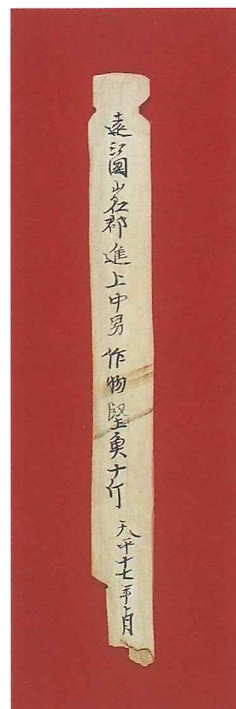 遠江國山名郡進上中男作物堅魚十斤 天平十七年十月